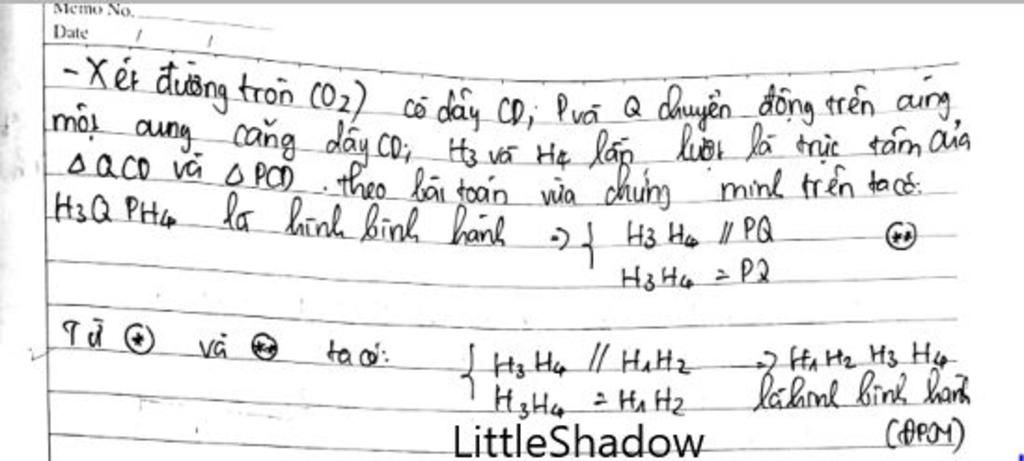 Memo No.
Date / /
- Xét đường tròn (O₂) có dây CD; P và Q chuyển động trên cùng
một cung căng dây CD; H₃ và H₄ lần lượt là trực tâm của
△QCD và △PCD. theo bài toán vừa chứng minh trên ta có:
H₃Q PH₄ là hình bình hành => { H₃H₄ // PQ (**)
H₃H₄ = PQ
Từ (*) và (**) ta có: { H₃H₄ // H₁H₂ => H₁H₂ H₃ H₄
H₃H₄ = H₁H₂ là hình bình hành
(ĐPCM)
LittleShadow